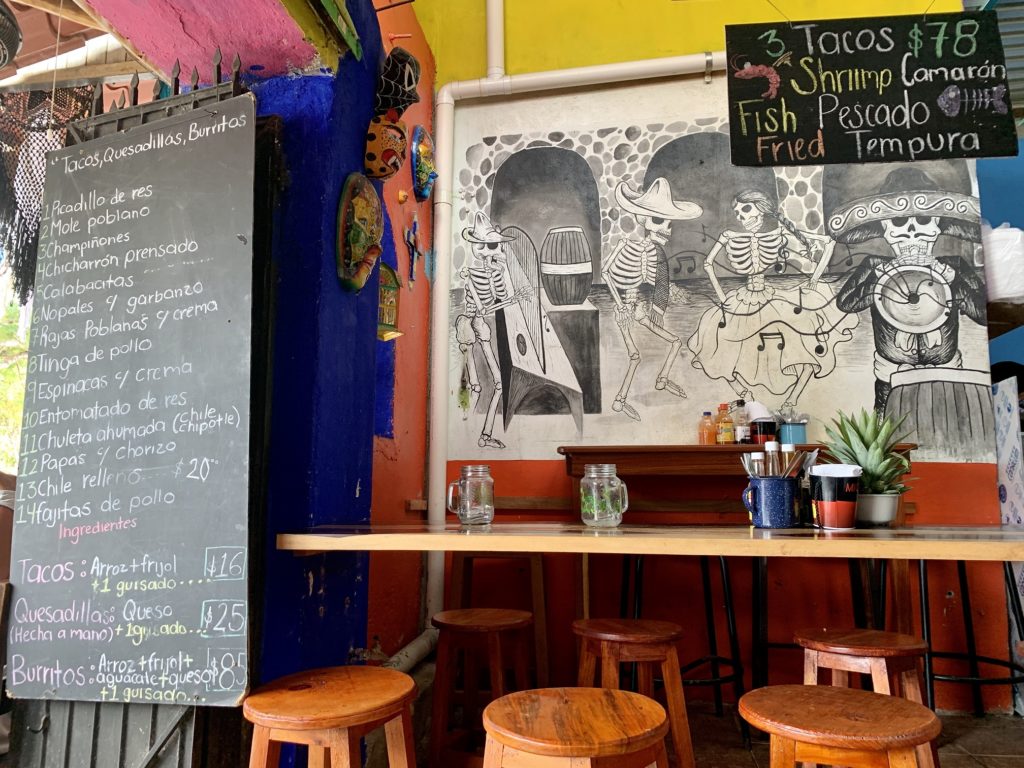 "Tacos, Quesadillas, Burritos
1 Picadillo de res
2 Mole poblano
3 Champiñones
4 Chicharrón prensado
5 Calabacitas
6 Nopales c/ garbanzo
7 Rajas Poblanas c/ crema
8 Tinga de pollo
9 Espinacas c/ crema
10 Entomatado de res
11 Chuleta ahumada (Chile chipotle)
12 Papas c/ chorizo
13 Chile relleno $20
14 Fajitas de pollo
Ingredientes
Tacos: Arroz+frijol $16
+1 guisado....
Quesadillas: Queso $25
(Hecha a mano) +1 guisado...
Burritos: Arroz+frijol+
aguacate+queso $85
+1 guisado...
3 Tacos $78
Shriimp Camarón
Fish Pescado
Fried Tempura